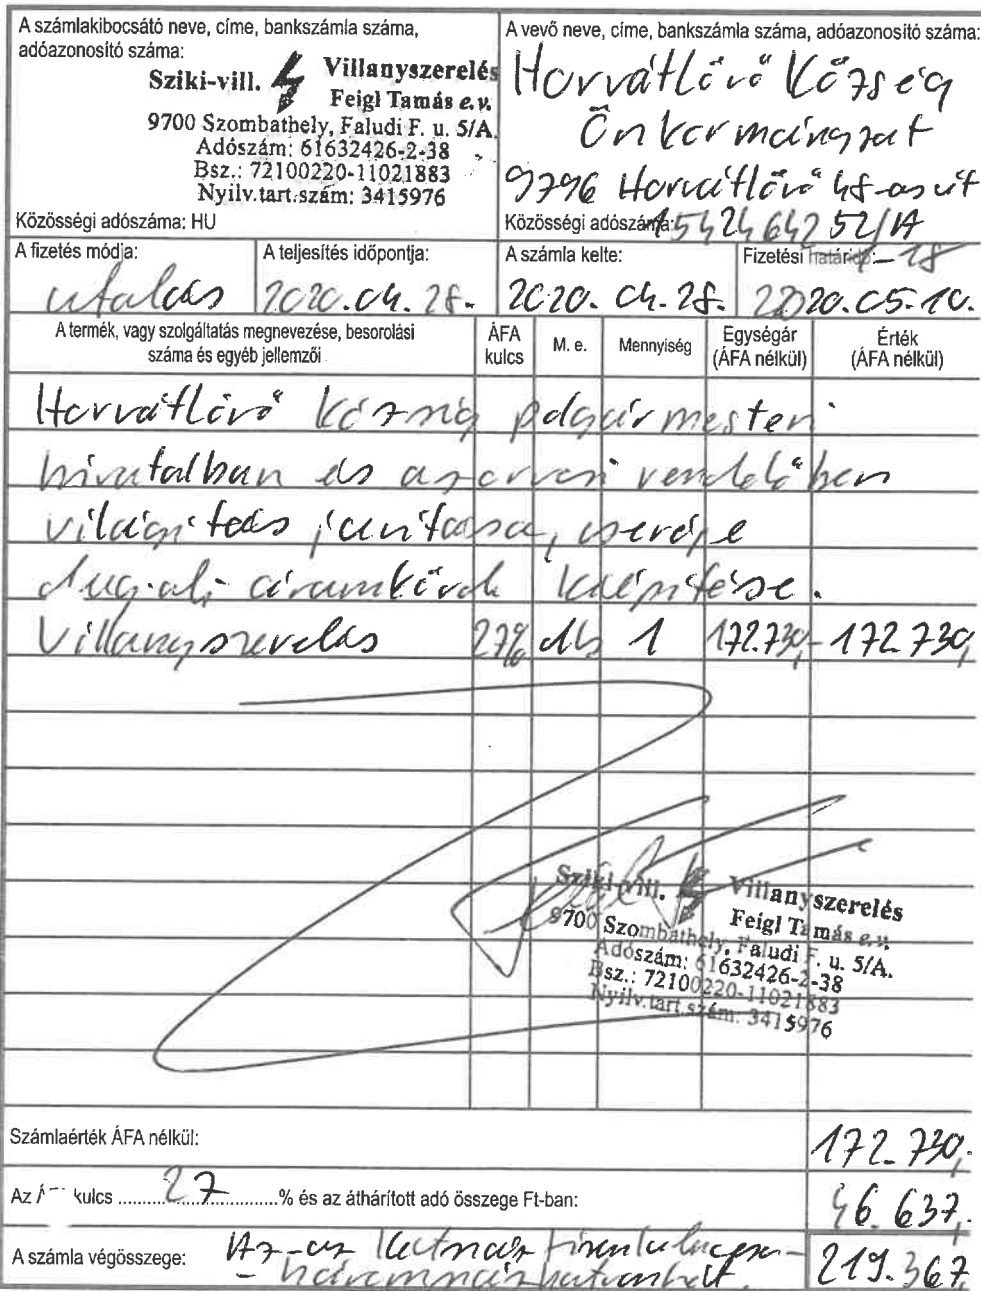 A számlakibocsátó neve, címe, bankszámla száma,
adóazonosító száma:
Sziki-vill. Villanyszerelés
Feigl Tamás e.v.
9700 Szombathely, Faludi F. u. 5/A.
Adószám: 61632426-2-38
Bsz.: 72100220-11021883
Nyilv.tart.szám: 3415976
Közösségi adószáma: HU
A vevő neve, címe, bankszámla száma, adóazonosító száma:
Horvátlövő Község
Önkormányzat
9796 Horvátlövő 48-as út
Közösségi adószáma:
A fizetés módja:
utalás
A teljesítés időpontja:
2020.04.28.
A számla kelte:
2020.04.28.
Fizetési határidő:
2020.05.10.
A termék, vagy szolgáltatás megnevezése, besorolási
száma és egyéb jellemzői
ÁFA
kulcs
M. e.
Mennyiség
Egységár
(ÁFA nélkül)
Érték
(ÁFA nélkül)
Horvátlövő Község polgármesteri
hivatalban és az orvosi rendelőben
világítás javítása, cseréje
dugalj áramkörök kiépítése.
Villanyszerelés 27% db 1 172.730,- 172.730,
Sziki-vill. Villanyszerelés
Feigl Tamás e.v.
9700 Szombathely, Faludi F. u. 5/A.
Adószám: 61632426-2-38
Bsz.: 72100220-11021883
Nyilv.tart.szám: 3415976
Számlaérték ÁFA nélkül: 172.730,-
Az kulcs 27 % és az áthárított adó összege Ft-ban: 46.637,-
A számla végösszege: Az-az Kettőszáz
háromszázhatvanhét 219.367